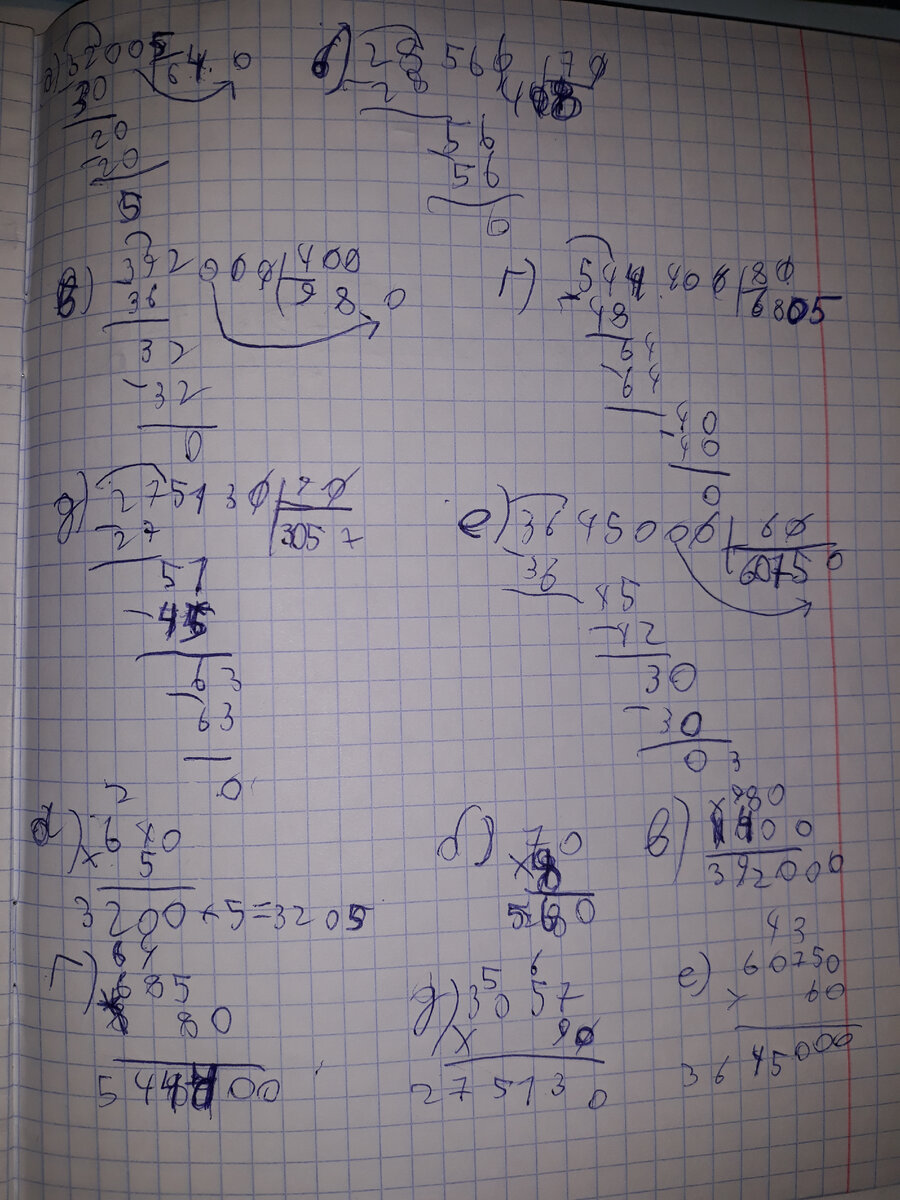 а) 32005 640
30
20
- 20
5
б) 28 560 70
- 28 408
56
- 56
0
в) 392 000 400
36 98 0
32
- 32
0
г) 544 400 80
- 48 6805
64
- 64
40
- 40
0
д) 275130 90
- 27 3057
51
- 45
63
- 63
0
е) 3645000 60
- 36 60750
45
- 42
30
- 30
0
2
а) 640
× 5
3200+5=3205
б) 70
×
в) × 980
400
392000
64
г) 685
× 80
5 6
д) 3057
× 90
275130
43
е) 60750
× 60
3645000